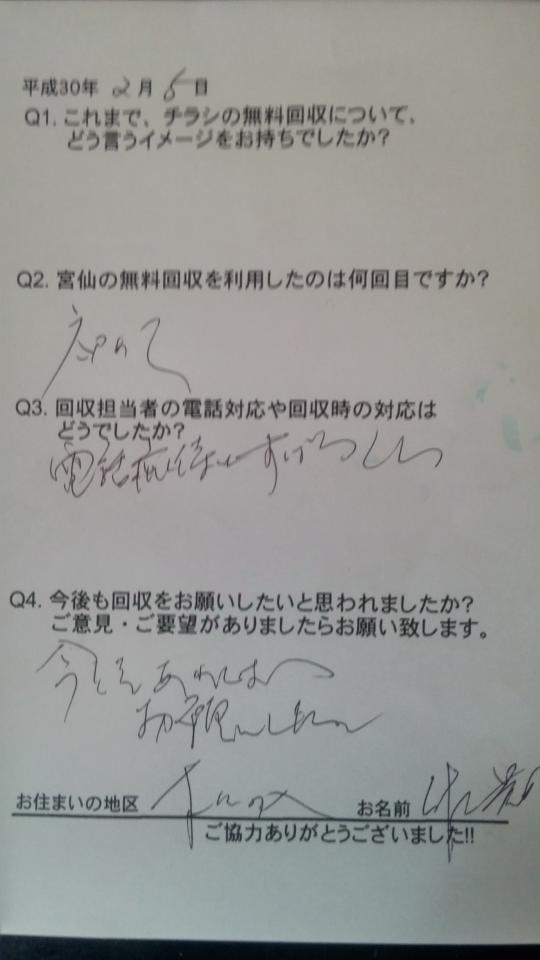 平成30年 2月 5日
Q1. これまで、チラシの無料回収について、
どう言うイメージをお持ちでしたか?
Q2. 宮仙の無料回収を利用したのは何回目ですか?
初めて
Q3. 回収担当者の電話対応や回収時の対応は
どうでしたか?
電話 すばらしい
Q4. 今後も回収をお願いしたいと思われましたか?
ご意見・ご要望がありましたらお願い致します。
あれば
お願いしたい
お住まいの地区 お名前
ご協力ありがとうございました!!